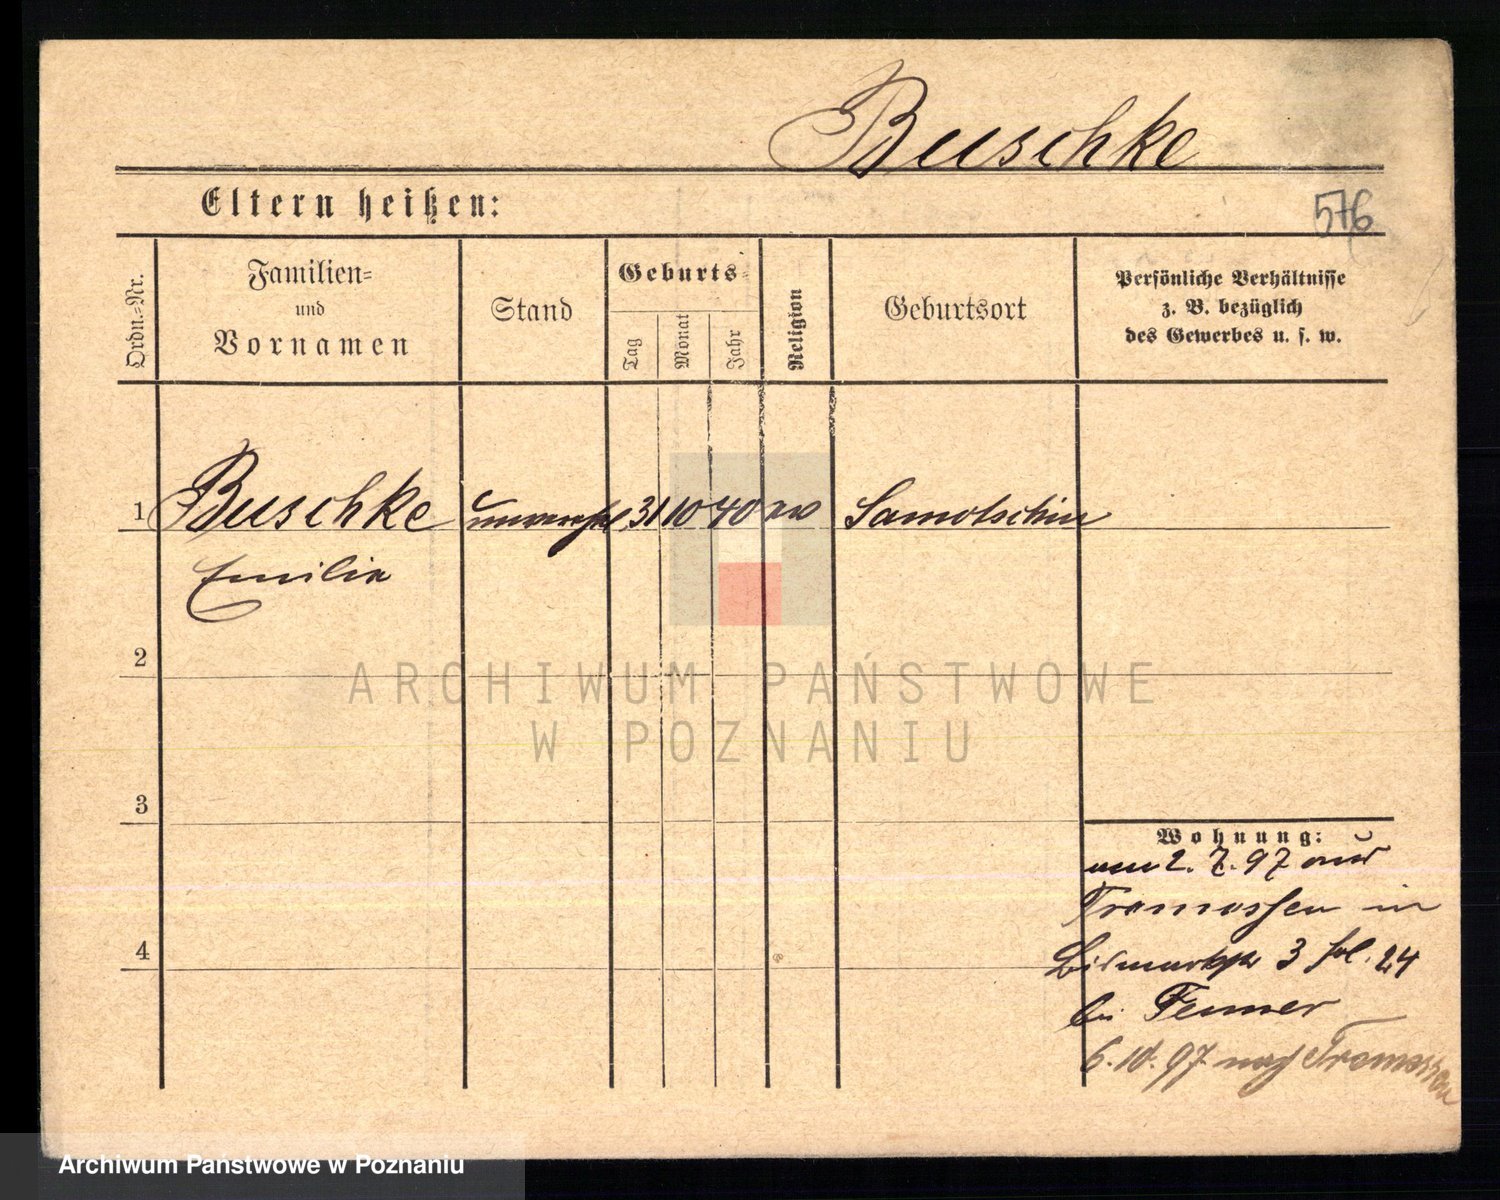 Buschke
Eltern heißen:
576
Ordn.-Nr.
Familien-
und
Vornamen
Stand
Geburts-
Tag
Monat
Jahr
Religion
Geburtsort
Persönliche Verhältnisse
z. B. bezüglich
des Gewerbes u. s. w.
1 Buschke 31 10 40 Samotschin
Emilie
2
ARCHIWUM PAŃSTWOWE
W POZNANIU
3
Wohnung:
2. 7. 97 aus
Tromessen in
Bismarckstr 3 fol. 24
bei Fenner
4
6. 10. 97 nach Tromessen
Archiwum Państwowe w Poznaniu